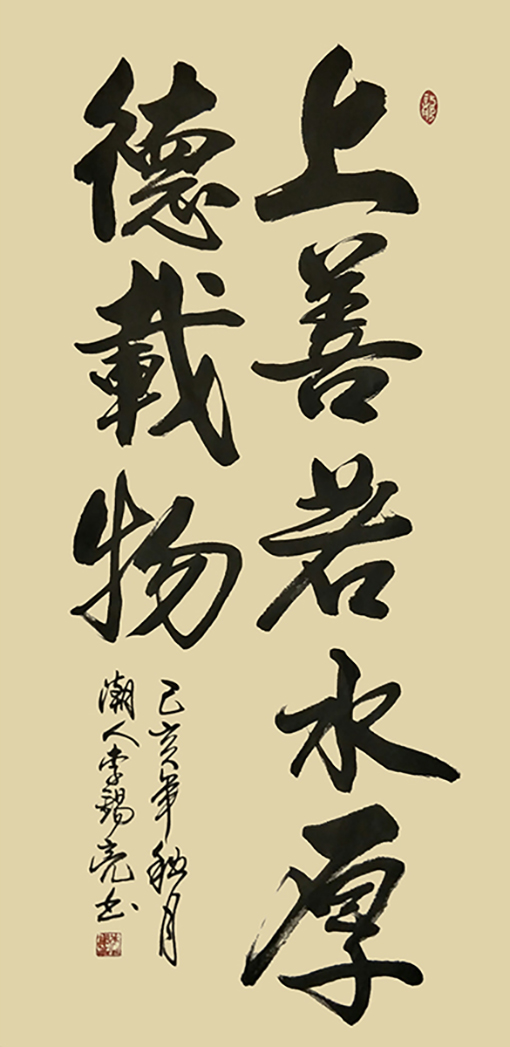 上善若水厚
德載物
己亥年秋月
潮人李錫亮书